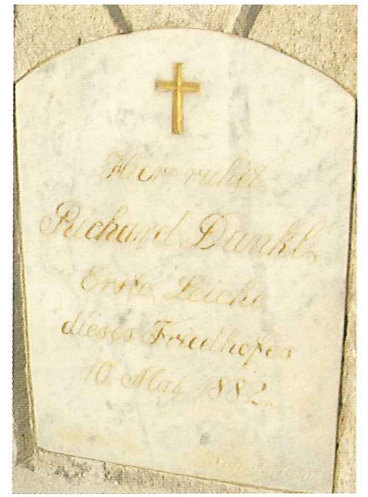 Hier ruhet
Richard Dunkl,
Erste Leiche
dieses Friedhofes
10. Mai 1882.